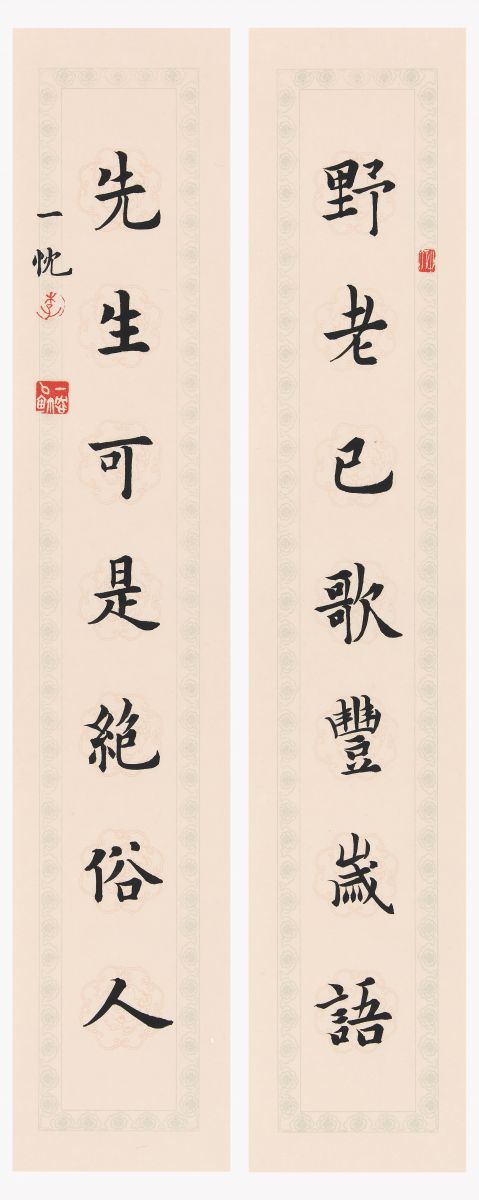 野老已歌豐歲語
先生可是絕俗人
一忱
李